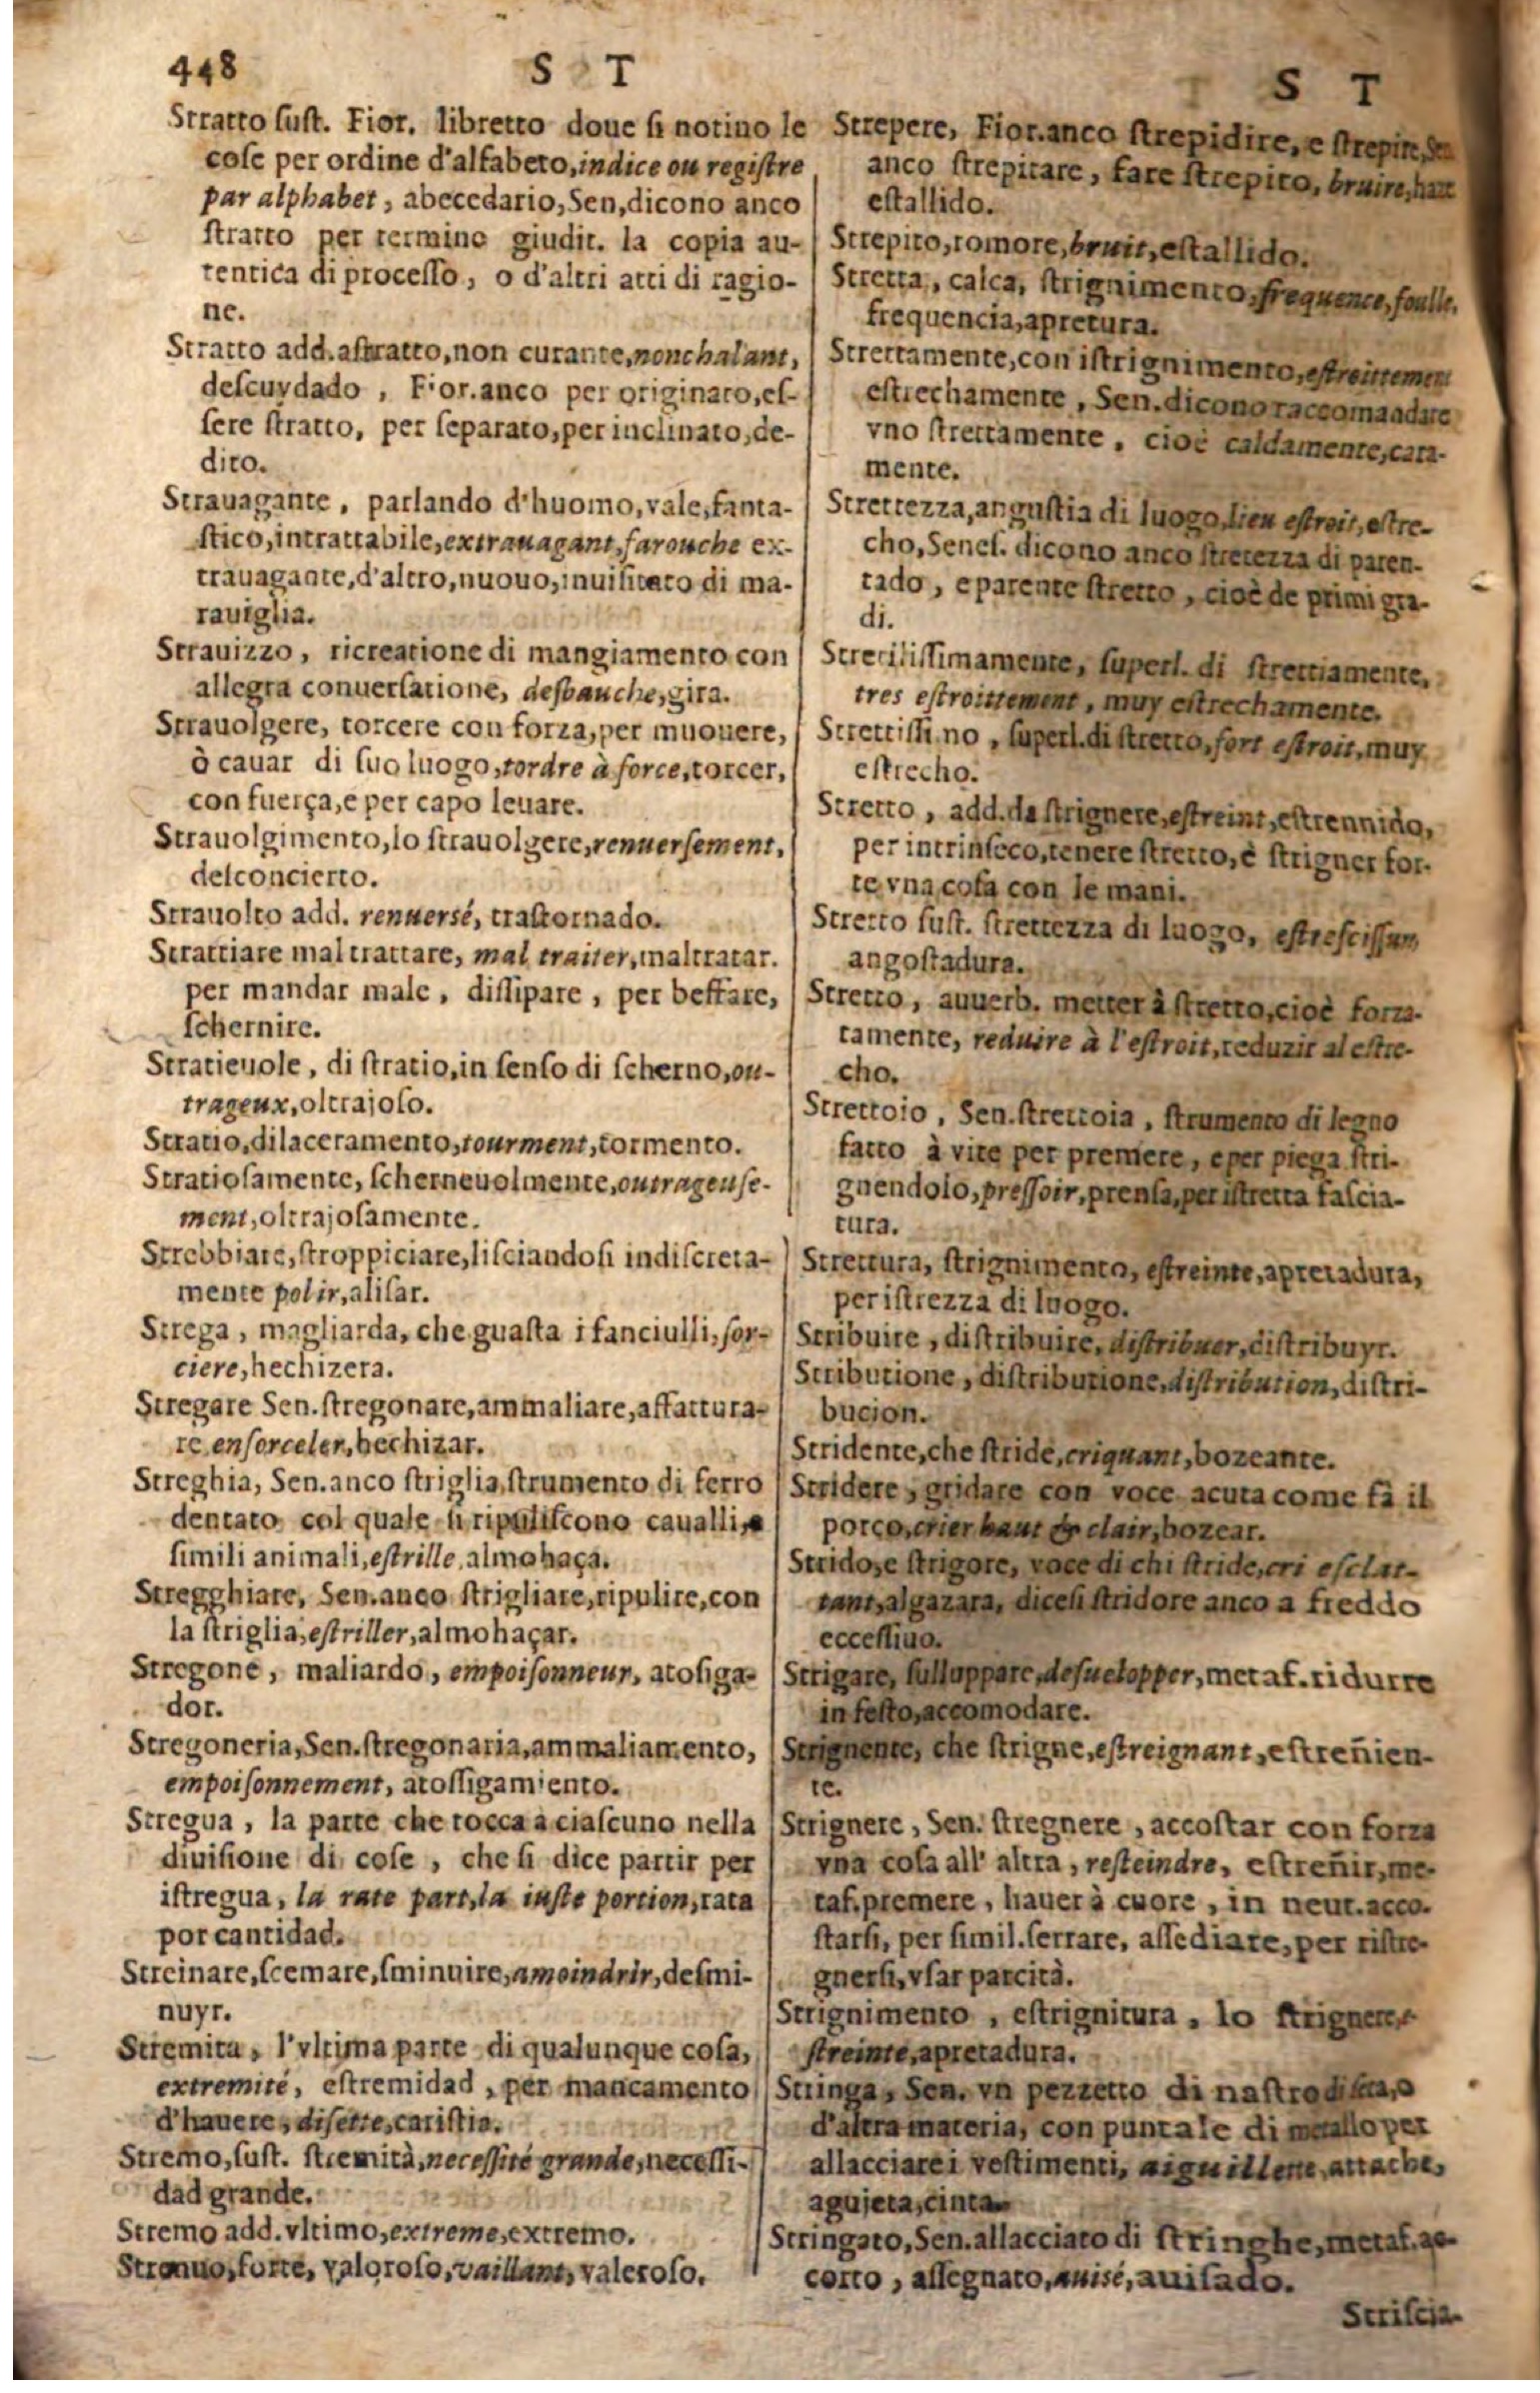 448
S T
Stratto ſuſt. Fior. libretto doue ſi notino le
coſe per ordine d'alfabeto, indice ou regiſtre
par alphabet, abecedario, Sen, dicono anco
ſtratto per termino giudit. la copia au-
tentica di proceſſo, o d'altri atti di ragio-
ne.
Stratto add. aſtratto, non curante, nonchalant,
deſcuydado, Fior. anco per originato, eſ-
ſere ſtratto, per ſeparato, per inclinato, de-
dito.
Strauagante, parlando d'huomo, vale, fanta-
ſtico, intrattabile, extrauagant, farouche ex-
trauagante, d'altro, nuouo, inuiſitato di ma-
rauiglia.
Strauizzo, ricreatione di mangiamento con
allegra conuerſatione, desbauche, gira.
Strauolgere, torcere con forza, per muouere,
ò cauar di ſuo luogo, tordre à force, torcer,
con fuerça, e per capo leuare.
Strauolgimento, lo ſtrauolgere, renuerſement,
deſconcierto.
Strauolto add. renuersé, traſtornado.
Strattiare mal trattare, mal traiter, maltratar.
per mandar male, diſſipare, per beffare,
ſchernire.
Stratieuole, di ſtratio, in ſenſo di ſcherno, ou-
trageux, oltrajoſo.
Stratio, dilaceramento, tourment, tormento.
Stratioſamente, ſcherneuolmente, outrageuſe-
ment, oltrajoſamente.
Strebbiare, ſtroppiciare, liſciandoſi indiſcreta-
mente polir, aliſar.
Strega, magliarda, che guaſta i fanciulli, ſor-
ciere, hechizera.
Stregare Sen. ſtregonare, ammaliare, affattura-
re enſorceler, hechizar.
Streghia, Sen. anco ſtriglia, ſtrumento di ferro
dentato col quale ſi ripuliſcono caualli, e
ſimili animali, eſtrille, almohaça.
Stregghiare, Sen. anco ſtrigliare, ripulire, con
la ſtriglia, eſtriller, almohaçar.
Stregone, maliardo, empoiſonneur, atoſiga-
dor.
Stregoneria, Sen. ſtregonaria, ammaliamento,
empoiſonnement, atoſſigamiento.
Stregua, la parte che tocca a ciaſcuno nella
diuiſione di coſe, che ſi dice partir per
iſtregua, la rate part, la iuſte portion, rata
por cantidad.
Streinare, ſcemare, ſminuire, amoindrir, deſmi-
nuyr.
Stremita, l'vltima parte di qualunque coſa,
extremité, eſtremidad, per mancamento
d'hauere, diſette, cariſtia.
Stremo, ſuſt. ſtremità, neceſſité grande, neceſſi-
dad grande.
Stremo add. vltimo, extreme, extremo.
Strenuo, forte, valoroſo, vaillant, valeroſo.
S T
Strepere, Fior. anco ſtrepidire, e ſtrepire, Sen
anco ſtrepitare, fare ſtrepito, bruire, haze
eſtallido.
Strepito, romore, bruit, eſtallido.
Stretta, calca, ſtrignimento, frequence, foulle,
frequencia, apretura.
Strettamente, con iſtrignimento, eſtroittement
eſtrechamente, Sen. dicono raccomandare
vno ſtrettamente, cioè caldamente, cara-
mente.
Strettezza, anguſtia di luogo, lieu eſtroit, eſtre-
cho, Seneſ. dicono anco ſtretezza di paren-
tado, e parente ſtretto, cioè de primi gra-
di.
Stretiliſſimamente, ſuperl. di ſtrettiamente,
tres eſtroittement, muy eſtrechamente.
Strettiſſi no, ſuperl. di ſtretto, fort eſtroit, muy
eſtrecho.
Stretto, add. da ſtrignere, eſtreint, eſtrennido,
per intrinſeco, tenere ſtretto, è ſtrigner for-
te vna coſa con le mani.
Stretto ſuſt. ſtrettezza di luogo,
angoſtadura.
Stretto, auuerb. metter à ſtretto, cioè forza-
tamente, reduire à l'eſtroit, reduzir al eſtre-
cho.
Strettoio, Sen. ſtrettoia, ſtrumento di legno
fatto à vite per premere, e per piega ſtri-
gnendolo, preſſoir, prenſa, per iſtretta faſcia-
tura.
Strettura, ſtrignimento, eſtreinte, apretadura,
per iſtrezza di luogo.
Stribuire, diſtribuire, diſtribuer, diſtribuyr.
Stributione, diſtributione, diſtribution, diſtri-
bucion.
Stridente, che ſtride, criquant, bozeante.
Stridere, gridare con voce acuta come fà il
porco, crier haut & clair, bozear.
Strido, e ſtrigore, voce di chi ſtride, cri eſclat-
tant, algazara, diceſi ſtridore anco a freddo
ecceſſiuo.
Strigare, ſulluppare, deſuelopper, metaf. ridurre
in ſeſto, accomodare.
Strignente, che ſtrigne, eſtreignant, eſtreñien-
te.
Strignere, Sen. ſtregnere, accoſtar con forza
vna coſa all' altra, reſteindre, eſtreñir, me-
taf. premere, hauer à cuore, in neut. acco-
ſtarſi, per ſimil. ſerrare, aſſediare, per riſtre-
gnerſi, vſar parcità.
Strignimento, eſtrignitura, lo ſtrignere, e-
ſtreinte, apretadura.
Stringa, Sen. vn pezzetto di naſtro di ſeta, o
d'altra materia, con puntale di metallo per
allacciare i veſtimenti, aiguillette, attache,
agujeta, cinta
Stringato, Sen. allacciato di ſtringhe, metaf. ac-
corto, aſſegnato, auisé, auiſado.
Striſcia-